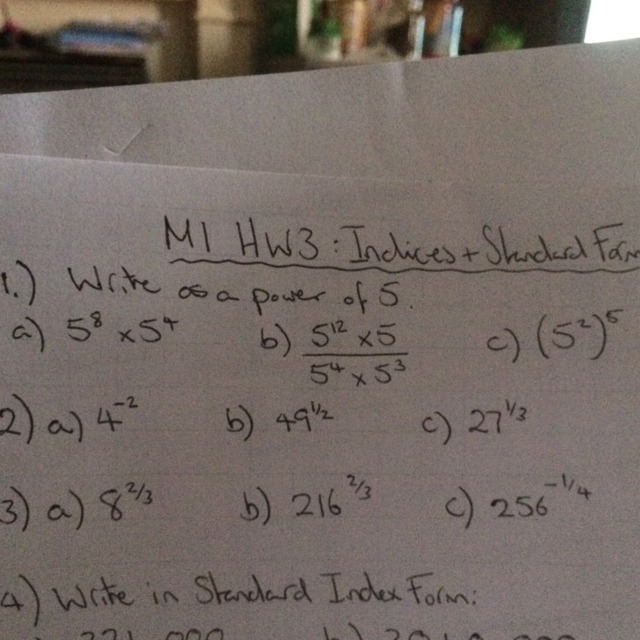 M1 HW3: Indices + Standard Form
1.) Write as a power of 5.
a) 5⁸ × 5⁴ b) (5¹² × 5)/(5⁴ × 5³) c) (5²)⁵
2) a) 4⁻² b) 49^1/2 c) 27^1/3
3) a) 8^2/3 b) 216^2/3 c) 256^-1/4
4) Write in Standard Index Form: